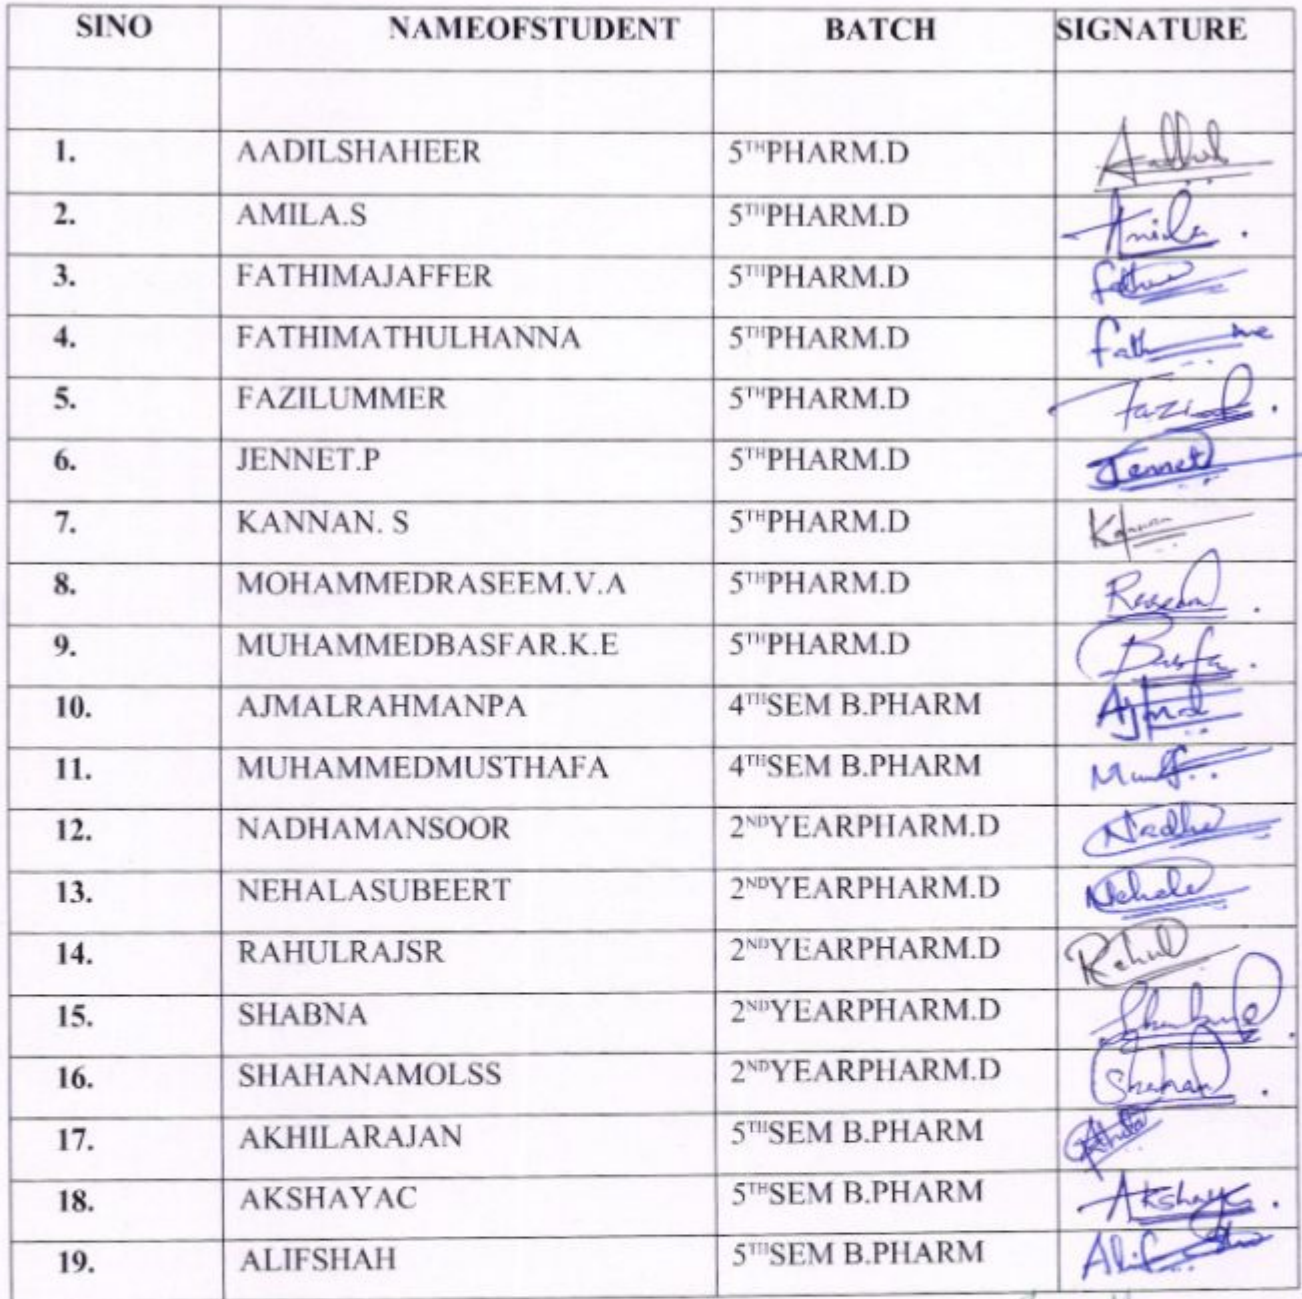 SINO NAMEOFSTUDENT BATCH SIGNATURE
1. AADILSHAHEER 5THPHARM.D
2. AMILA.S 5THPHARM.D Amila.
3. FATHIMAJAFFER 5THPHARM.D
4. FATHIMATHULHANNA 5THPHARM.D
5. FAZILUMMER 5THPHARM.D
6. JENNET.P 5THPHARM.D Jennet
7. KANNAN. S 5THPHARM.D
8. MOHAMMEDRASEEM.V.A 5THPHARM.D
9. MUHAMMEDBASFAR.K.E 5THPHARM.D
10. AJMALRAHMANPA 4THSEM B.PHARM Ajmal
11. MUHAMMEDMUSTHAFA 4THSEM B.PHARM
12. NADHAMANSOOR 2NDYEARPHARM.D Nadha
13. NEHALASUBEERT 2NDYEARPHARM.D Nehala
14. RAHULRAJSR 2NDYEARPHARM.D Rahul
15. SHABNA 2NDYEARPHARM.D
16. SHAHANAMOLSS 2NDYEARPHARM.D
17. AKHILARAJAN 5THSEM B.PHARM
18. AKSHAYAC 5THSEM B.PHARM Akshaya.
19. ALIFSHAH 5THSEM B.PHARM